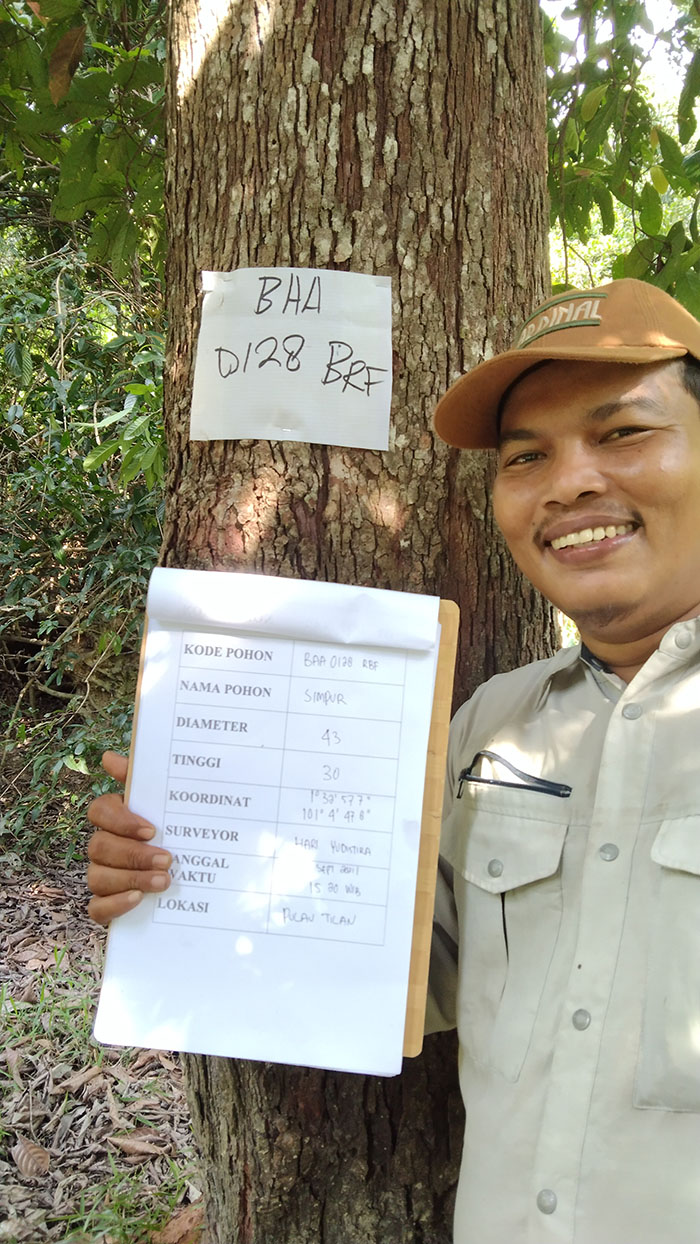 BAA
0128 BRF
KODE POHON BAA 0128 RBF
NAMA POHON SIMPUR
DIAMETER 43
TINGGI 30
KOORDINAT 1° 37' 57 7"
101° 4' 47 8"
SURVEYOR HARI YUDISTIRA
TANGGAL SEPT
WAKTU 15.20 WIB
LOKASI PULAU TILAN